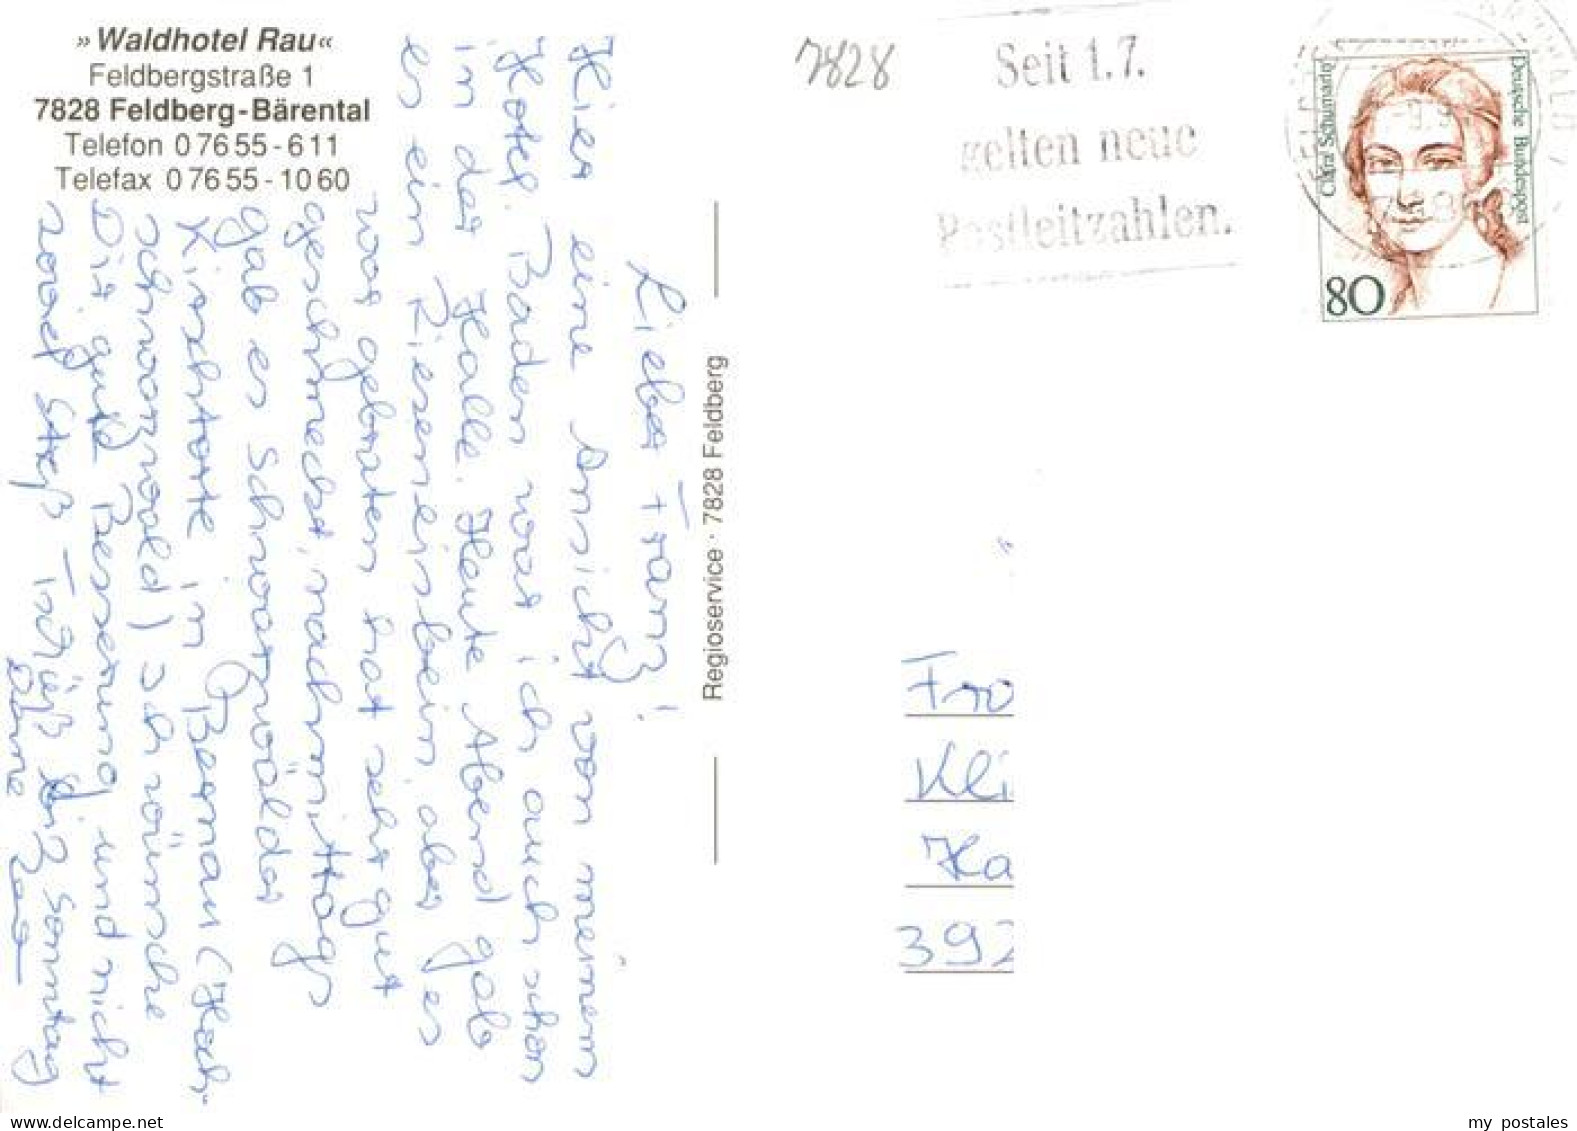 » Waldhotel Rau «
Feldbergstraße 1
7828 Feldberg-Bärental
Telefon 0 76 55 - 6 11
Telefax 0 76 55 - 10 60
Lieber Franz!
Hier eine Ansicht von meinem
Hotel. Baden war ich auch schon
in der Halle. Heute Abend gab
es ein Rieseneisbein, aber es
war gebraten hat sehr gut
geschmeckt, nachmittags
gab es Schwarzwälder
Kirschtorte in Bernau (Hoch-
schwarzwald) Ich wünsche
Dir gute Besserung und nicht
soviel Streß Tschüß bis Sonntag
Regioservice · 7828 Feldberg
7828
Seit 1.7.
gelten neue
Postleitzahlen.
Clara Schumann
Deutsche Bundespost
80
Fra
Kli
Ha
392
www.delcampe.net
my_postales